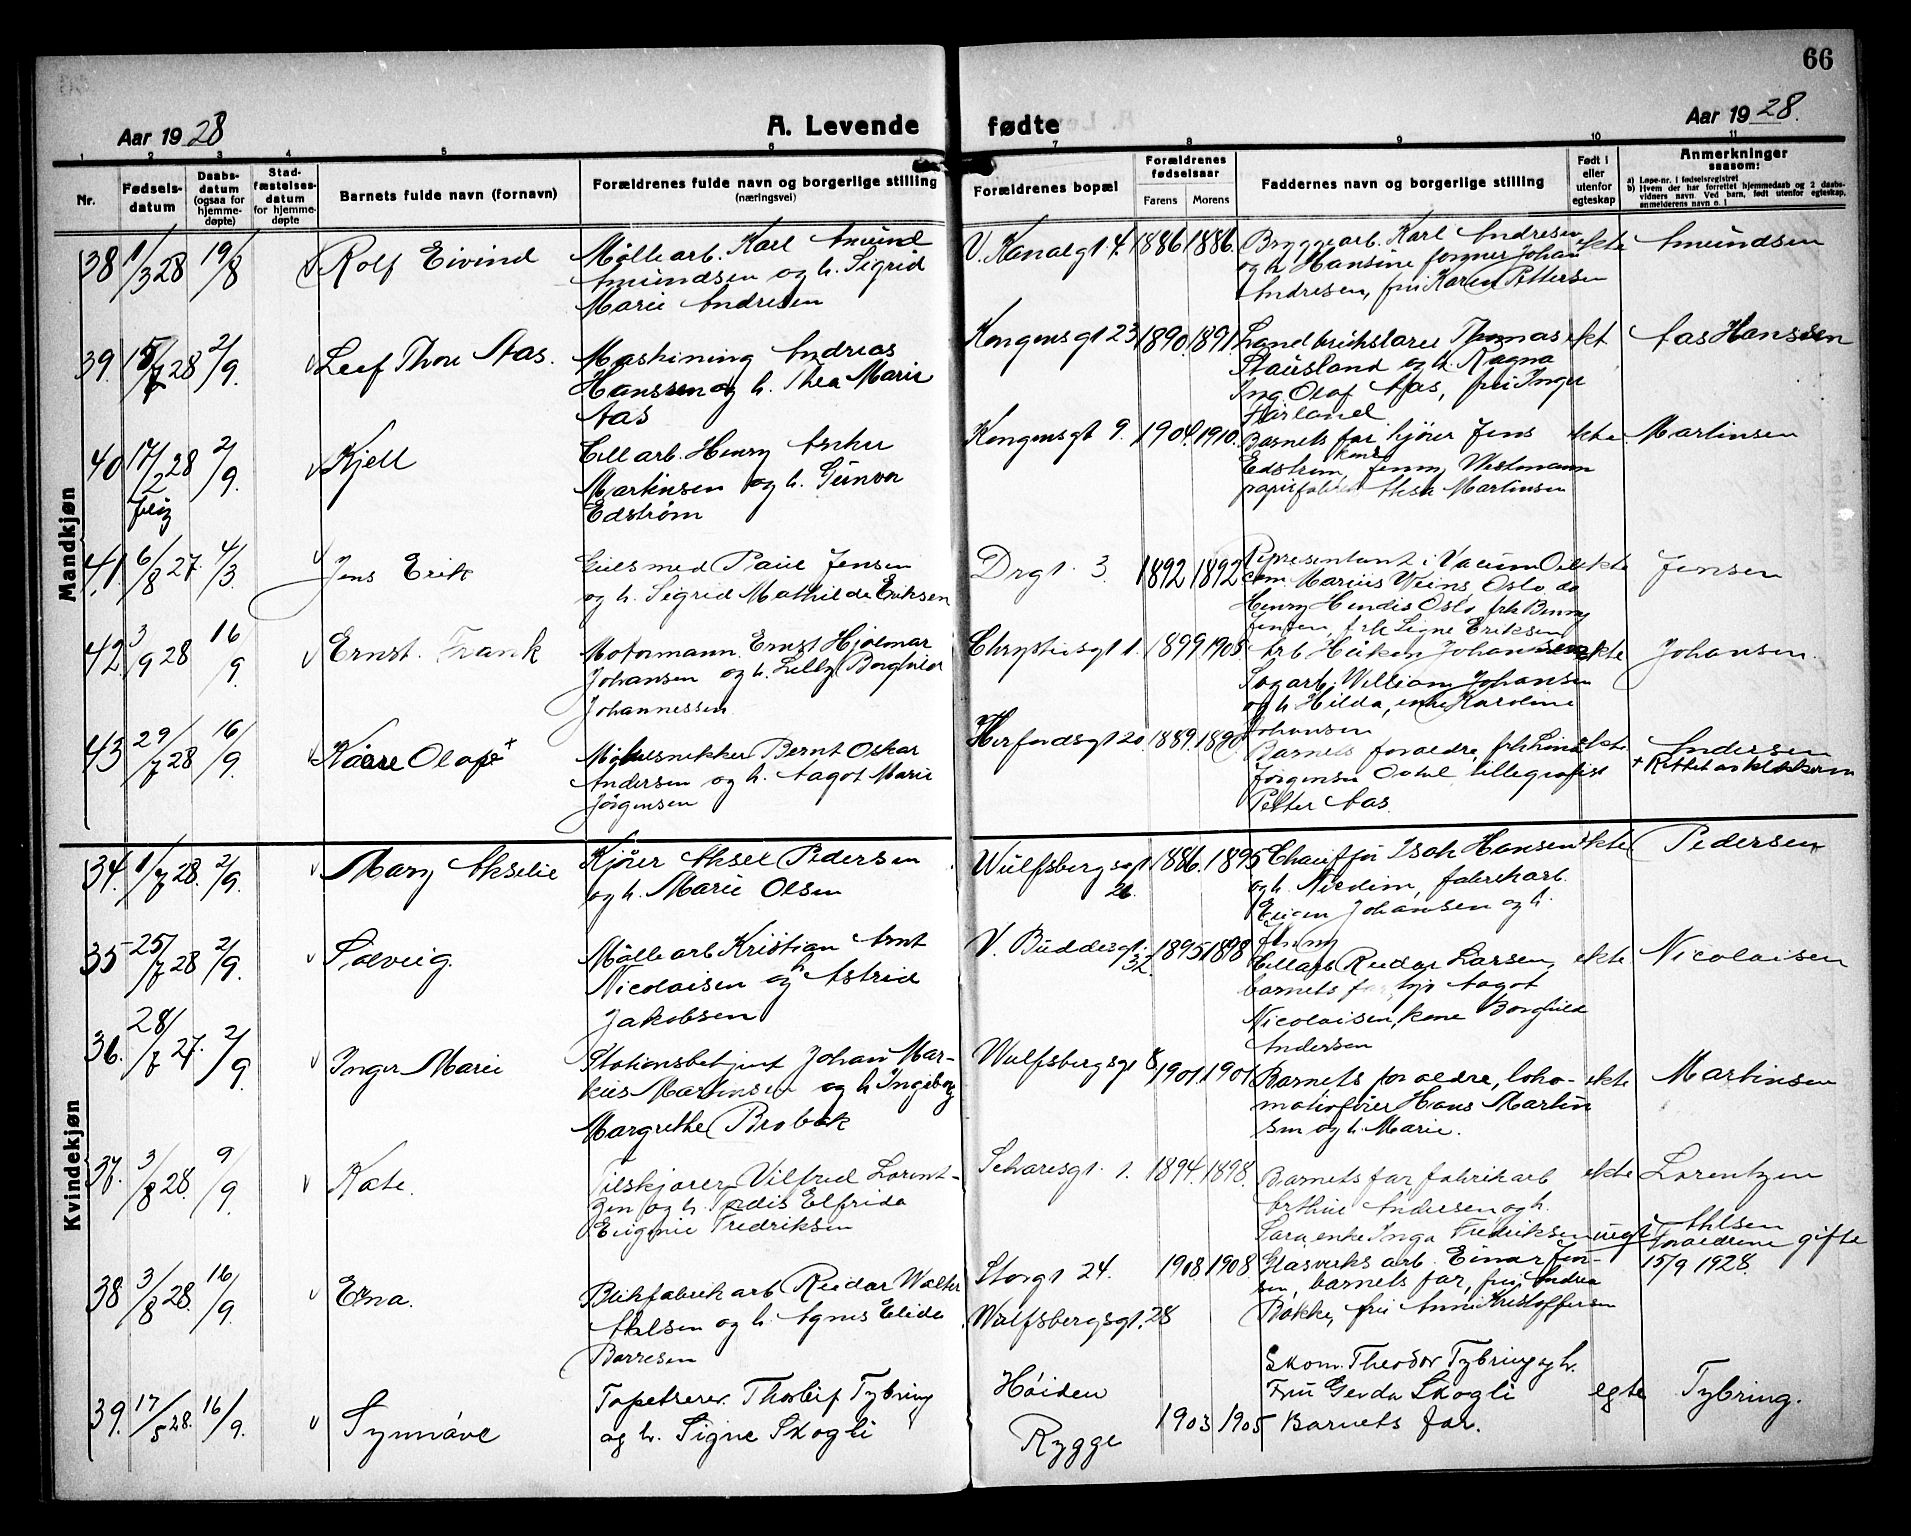 66
Aar 1928
A. Levende
fødte
Aar 1928.
1 2 3 4 5 6 7 8 9 10 11
Nr.
Fødsels-
datum
Daabs-
datum
(ogsaa for
hjemme-
døpte)
Stad-
fæstelses-
datum
for hjemme-
døpte
Barnets fulde navn (fornavn)
Forældrenes fulde navn og borgerlige stilling
(næringsvei)
Forældrenes bopæl
Forældrenes
fødselsaar
Farens Morens
Faddernes navn og borgerlige stilling
Født i
eller
utenfor
egteskap
Anmerkninger
saasom:
a) Løpe-nr. i fødselsregistret
b) Hvem der har forrettet hjemmedaab og 2 daabs-
vidners navn. Ved barn, født utenfor egteskap,
anmelderens navn o. l.
Mandkjøn
38 1/3 28 19/8 Rolf Eivind
Møllearb. Karl Amund
Amundsen og h. Sigrid
Marie Andresen
V. Kanalgt. 4. 1886 1886.
Bryggearb. Karl Andresen
og h Hansine, Johan
Andresen, fru Karen Pettersen
ekte Amundsen
39. 15/7 28 2/9. Leif Thore Aas.
Maskining Andreas
Hanssen og h. Thea Marie
Aas
Kongensgt 23 1890. 1891.
Landbrukslærer Thomas
Stausland og h. Ragna
Ing Olaf Aas, fru Inger
Færland
ekt Aas Hanssen
40 17/2 28 2/9. Kjell
Cellarb. Henry Anker
Martinsen og h. Gunvor
Edstrøm
Kongensgt 9. 1904. 1910.
Barnets far, kjører Jens
Edstrøm, kone Jenny Westmann
Martinsen
ekte. Martinsen
41. 6/8 27. 4/3 Jens Erik
Gulsmed Paul Jensen
og h. Sigrid Mathilde Eriksen
Drgt. 3. 1892 1892
Representant i Vacum Oil
com. Marius Weins, Oslo, do
Henry Hendis Oslo, frk Benny
Jensen, frk Signe Eriksen
ekte Jensen
42. 3/9 28 16/9. Ernst Frank
Motormann Ernst Hjalmar
Johansen og h. Lilly Borghild
Johannessen
Chrystiesgt 1. 1899. 1905
Arb Håken Johansen
Sagarb. William Johansen
og h Hilda, enke Karoline
Johansen
ekte Johansen.
43 29/7 28 16/9. Kåre Olaf +
Møbelsnekker Bernt Oskar
Andersen og h. Aagot Marie
Jörgensen
Herfordsgt 20. 1889. 1890
Barnets foraeldre, frk
Jörgensen tillegrafist
Petter Aas.
ekte Andersen
+ Rettet av klokkeren
Kvindekjøn
34. 1/7 28. 2/9. Mary Akselie
Kjörer Aksel Pedersen
og h. Marie Olsen
Wulfsbergsgt 26. 1886. 1895
Chauffør Isak Hansen
og h. fabrikarb.
Johansen og h.
Jenny
ekte Pedersen
35 25/7 28 2/9. Solveig.
Møllearb Kristian Arnt
Nicolaisen og h Astrid
Jakobsen
V. Buddesgt. 32. 1895 1898
Cellarb Reidar Larsen,
barnets far, Aagot
Nicolaisen, kone Borghild
Andersen
ekte Nicolaisen
36. 28/7 27. 2/9 Inger Marie
Stationsbetjent Johan Mar-
kus Martinsen og h Ingeborg
Margrethe Brobæk
Wulfsbergsgt 8 1901. 1901
Barnets foraeldre, loko-
motivfører Hans Martin
sen og h. Marie.
ekte Martinsen
37. 3/8 28. 9/9 Kate.
Tilskjærer Vilfred Lorent-
zen og h. Elfrida
Eugenie Fredriksen
1. 1894. 1898.
Barnets far, fabrikarb
Arthur Andersen og h.
Sara, enke Inga Fredriksen
ekte Lorentzen
38 3/8 28. 16/9. Erna.
Blikfabrikarb Reidar Walter
Ahlsen og h. Agnes Elida
Børresen
Storgt 24. 1908 1908
Wulfsbergsgt. 28
Glasverksarb. Einar Jen-
sen, barnets far, fru Andrea
Bakke, fru Anna Kristoffersen
uegte Ahlsen
Foraeldrene gifte
15/9 1928.
39. 17/5 28. 16/9. Synnöve
Tapetserer. Thorleif Tybring
og h. Signe Skogli
Höiden
Rygge
1903 1905
Skom. Theodor Tybring og h.
Fru Gerda Skogli
Barnets far.
egte Tybring.